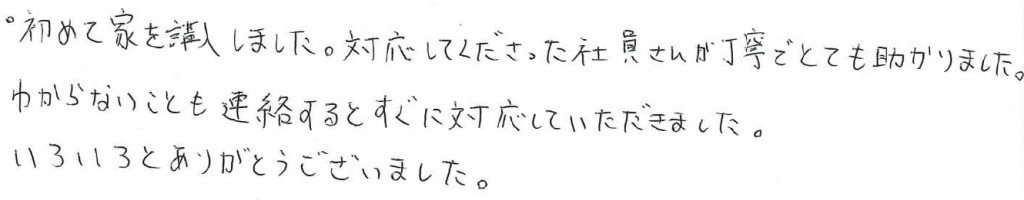 °初めて家を講入しました。対応してくださった社員さんが丁寧でとても助かりました。
わからないことも連絡するとすぐに対応していただきました。
いろいろとありがとうございました。